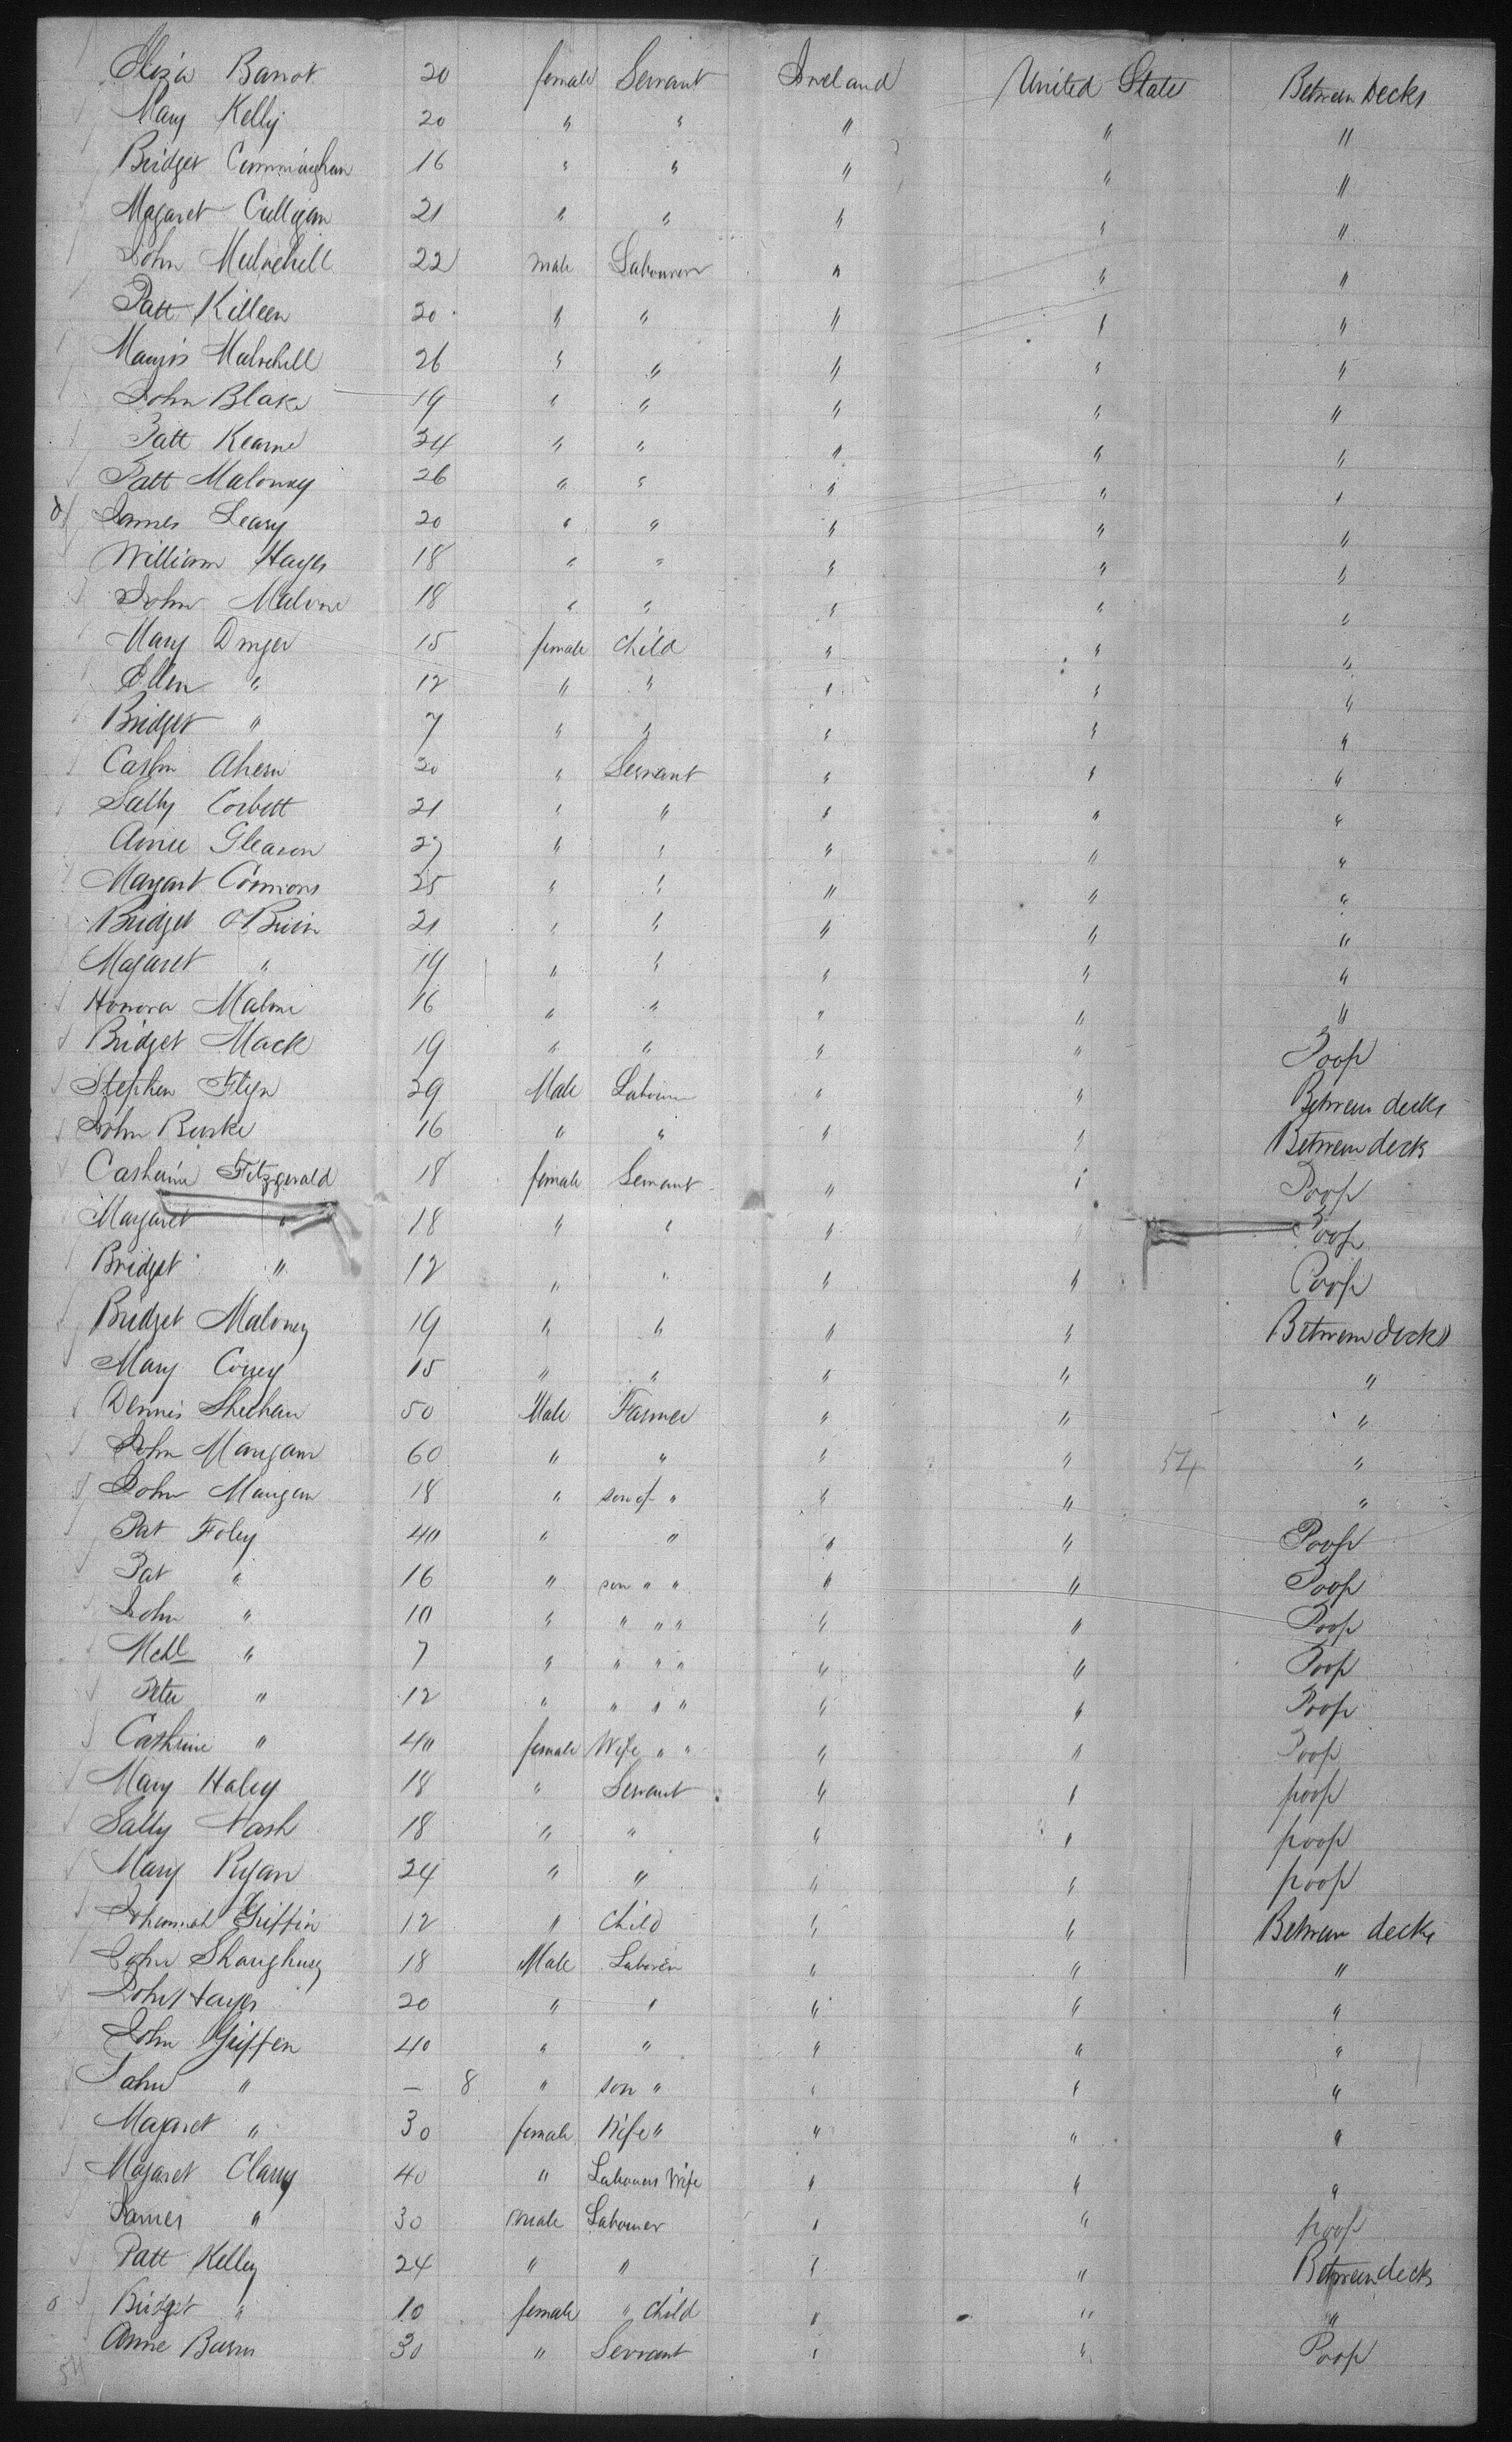 Eliza Barrot 20 female Servant Ireland United State Between Decks
Mary Kelly 20 " " " " "
Bridget Cunninghan 16 " " " " "
Magaret Culligan 21 " " " " "
John Mulvehill 22 male Labourer " " "
Patt Killeen 20 " " " " "
Mulvehill 26 " " " " "
John Blake 19 " " " " "
Patt Kearne 24 " " " " "
Patt Maloney 26 " " " " "
James Leary 20 " " " " "
William Hayes 18 " " " " "
John Malone 18 " " " " "
Mary Dwyer 15 female Child " " "
Ellen " 12 " " " " "
Bridget " 7 " " " " "
Ahern 20 " Servant " " "
Sally Corbett 21 " " " " "
Gleason 27 " " " " "
Margart Connors 25 " " " " "
Bridget O'Brien 21 " " " " "
Magaret " 19 " " " " "
Honora Malone 16 " " " " "
Bridget Mack 19 " " " " Poop
Stephen Flyn 29 Male Labourer " " Between decks
John Burke 16 " " " " Between deck
Catherine Fitzgerald 18 female Servant " " Poop
Margaret " 18 " " " " Poop
Bridget " 12 " " " " Poop
Bridget Maloney 19 " " " " Between decks
Mary 15 " " " " "
Dennis Sheehan 50 Male Farmer " " "
John Mangan 60 " " " " 54 "
John Mangan 18 " son of " " " "
Pat Foley 40 " " " " Poop
Pat " 16 " son " " " " Poop
John " 10 " " " " " " Poop
Mchl " 7 " " " " " " Poop
Peter " 12 " " " " " " Poop
Catherine " 40 female Wife " " " " Poop
Mary Haley 18 " Servant " " poop
Sally Nash 18 " " " " poop
Mary Ryan 24 " " " " poop
Johannah Griffin 12 " Child " " Between decks
John Shaughnesy 18 Male Laborer " " "
John Hayes 20 " " " " "
John Griffen 40 " " " " "
John " — 8 " son " " " "
Magaret " 30 female Wife " " " "
Magaret Clancy 40 " Labourers Wife " " "
James " 30 male Labourer " " poop
Patt Kelley 24 " " " " Between decks
Bridget " 10 female " Child " " "
Anne Burns 30 " Servant " " Poop
54